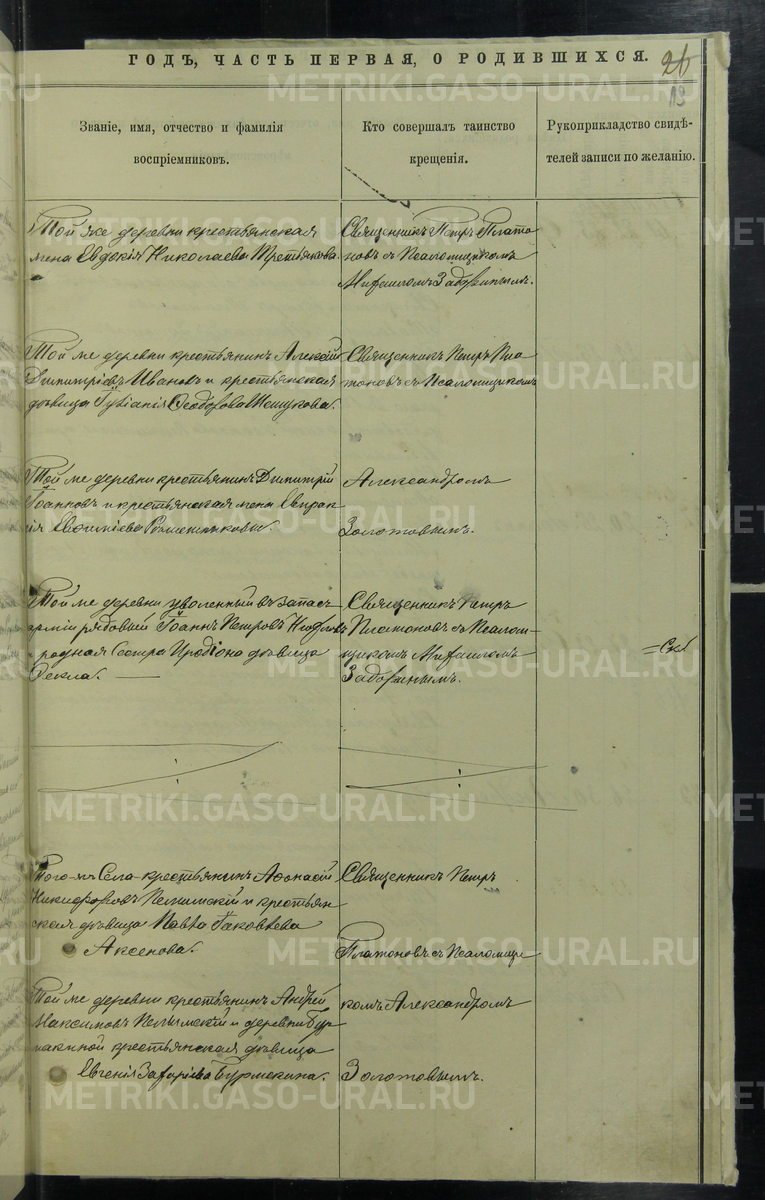 ГОДЪ, ЧАСТЬ ПЕРВАЯ, О РОДИВШИХСЯ.
26
Званіе, имя, отчество и фамилія
воспріемниковъ.
Кто совершалъ таинство
крещенія.
Рукоприкладство свидѣ-
телей записи по желанію.
Той же деревни крестьянская
жена Евдокія Николаева Третьякова.
Священникъ Петръ Плато
новъ съ Псаломщикомъ
Михаиломъ Задоринымъ.
Той же деревни крестьянинъ Алексѣй
Димитріевъ Ивановъ и крестьянская
дѣвица Ѳеодорова
Священникъ Петръ Пла
тоновъ съ Псаломщикомъ
Той же деревни крестьянинъ Димитрій
Іоанновъ и крестьянская жена Евпрак
Александромъ
Золотовымъ.
Той же деревни уволенный въ запасъ
арміи рядовый Іоаннъ Петровъ
и родная Сестра Иродіона дѣвица
Ѳекла.
Священникъ Петръ
Платоновъ съ Псалом-
щикомъ Михаиломъ
Задоринымъ.
Того-же Села крестьянинъ Аѳанасій
Никифоровъ Пелымскій и крестьян
ская дѣвица Павла Іаковлева
Аксенова.
Священникъ Петръ
Платоновъ съ Псаломщи
Той же деревни крестьянинъ Андрей
Максимовъ Пелымскій и деревни Бур
макиной крестьянская дѣвица
Евгенія Захаріева Бурмакина.
комъ Александромъ
Золотовымъ.
METRIKI.GASO-URAL.RU